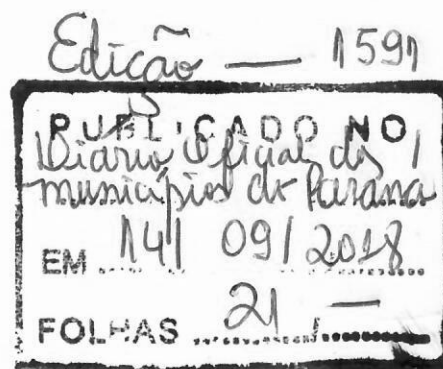 Edição — 1591
PUBLICADO NO
Diário Oficial dos
municípios do Paraná
EM 14/ 09/ 2018
FOLHAS 21 / —